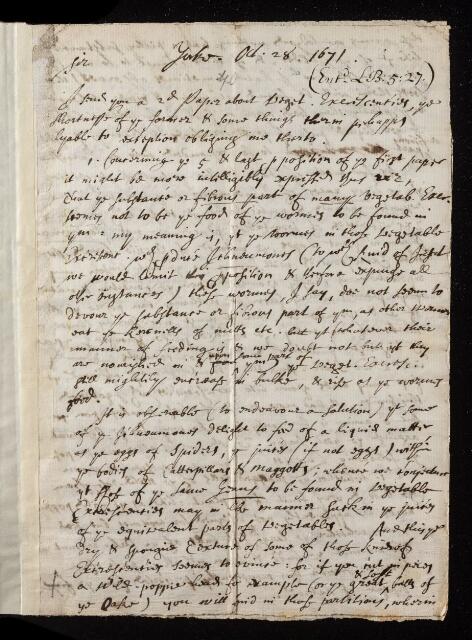 Sir Yorke. Oct. 28 1671
(Entd. L.B. 5: 27.)
I send you a 2d Paper about Veget. Excrescencies, ye
shortnesse of ye former & some things therin perhapps
lyable to exception obligeing me therto.
1. Concerning ye 5 & last pposition of ye first paper
it might be more intelligibly expressed thus viz
that ye substance or fibrous part of many vegetab. Excre-
scencies not to be ye food of ye wormes to be found in
ym: my meaning is, yt ye wormes in those vegetable
Excrescen. wch produce Ichneumones (to wch kind of Insect
we would limit this pposition & therfore expunge all
other instances) these wormes, I say, doe not seem to
devour ye substance or fibrous part of ym, as other wormes
eat ye kernells of nutts etc. but yt whatever their
manner of feeding is & we doubt not but yt they
are nourished in & upon some part of ym) ye veget. Excresc.
still mightily encrease in bulke, & rise as ye wormes
feed.
It is observeable (to endeavour a solution) yt some
of ye Ichneumones delight to feed of a liquid matter
as ye eggs of Spiders, ye juices (if not eggs) within
ye bodies of Caterpillars & Maggotts; whence we conjecture
yt those of ye same Genus to be found in vegetable
Excrescencies may in like manner suck in ye juices
of ye equivalent parts of vegetables. And this ye
dry & spongie texture of some of those kindes of
Excrescencies seemes to evince: for if you cut in pieces
a wild poppie head for example (or ye great & soft balls of
ye Oake) you will find in those partitions, wherin